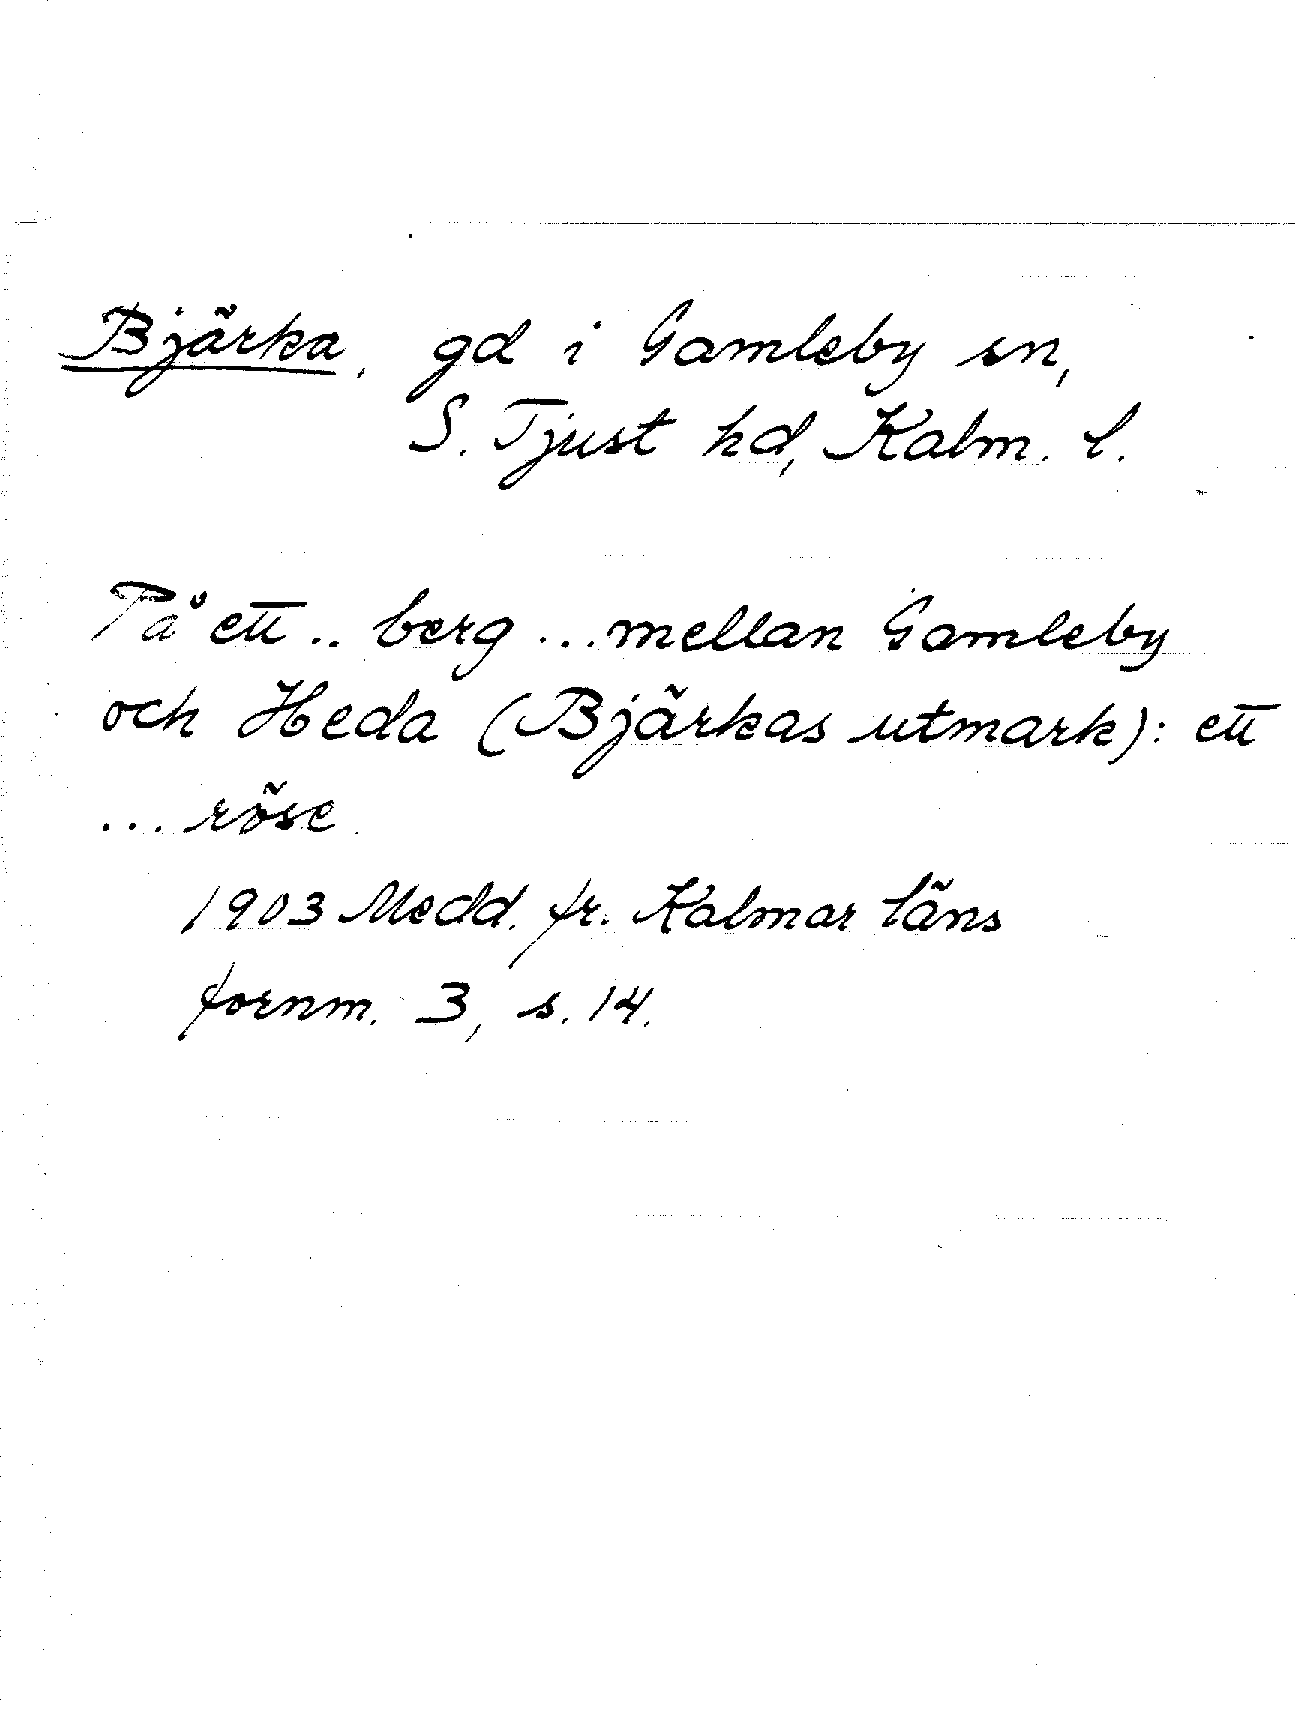 Bjärka, gd i Gamleby sn,
S. Tjust hd, Kalm. l.
På ett .. berg ... mellan Gamleby
och Heda (Bjärkas utmark): ett
... röse
1903 Medd. fr. Kalmar läns
fornm. 3, s. 14.